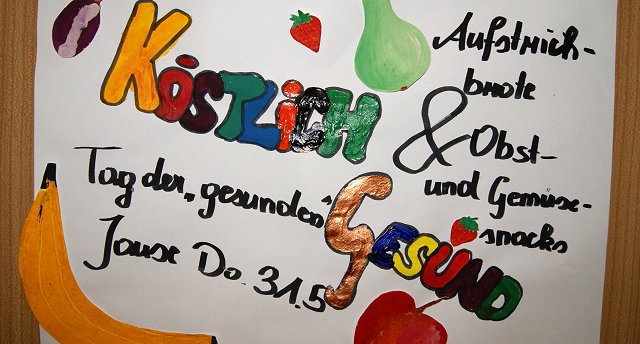 KÖSTLICH
&
GESUND
Aufstrich-
brote
Obst-
und Gemüse-
snacks
Tag der „gesunden"
Jause Do. 31.5